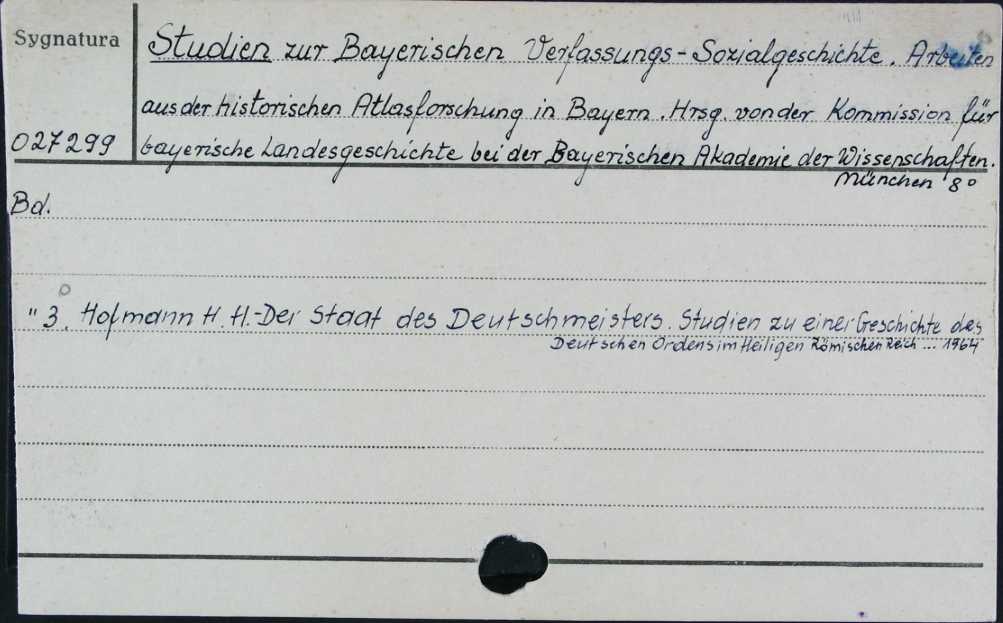 Sygnatura
027299
Studien zur Bayerischen Verfassungs-Sozialgeschichte. Arbeiten
aus der historischen Atlasforschung in Bayern. Hrsg. von der Kommission für
bayerische Landesgeschichte bei der Bayerischen Akademie der Wissenschaften.
München 8°
Bd.
" 3. Hofmann H. H.-Der Staat des Deutschmeisters. Studien zu einer Geschichte des
Deutschen Ordens im Heiligen Römischen Reich ... 1964